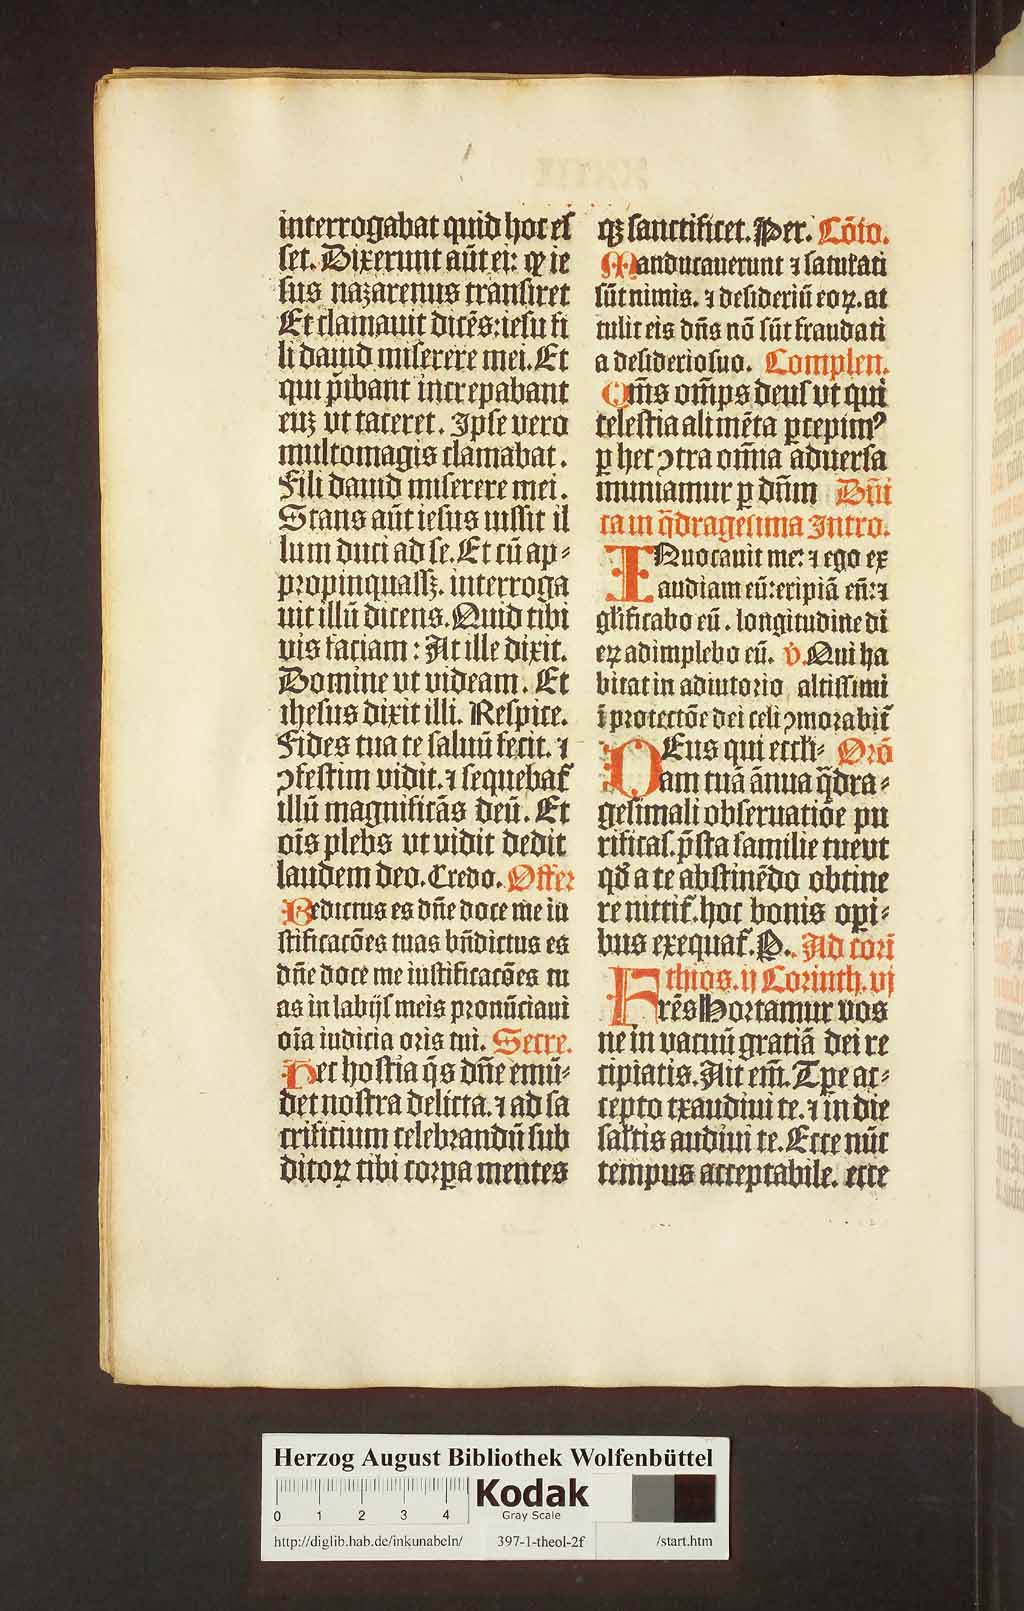 interrogabat quid hoc es
set. Dixerunt aūt ei: ꝙ ie
sus nazarenus transiret
Et clamauit dicēs: iesu fi
li dauid miserere mei. Et
qui p̄ibant increpabant
euꝫ vt taceret. Ipse vero
multomagis clamabat.
Fili dauid miserere mei.
Stans aūt iesus iussit il
lum duci ad se. Et cū ap⸗
propinquassꝫ. interroga
uit illū dicens. Quid tibi
vis faciam: At ille dixit.
Domine vt videam. Et
ihesus dixit illi. Respice.
Fides tua te saluū fecit. ⁊
ꝯfestim vidit. ⁊ sequebat̃
illū magnificās deū. Et
oīs plebs vt vidit dedit
laudem deo. Credo. Offer
Bedictus es dn̄e doce me iu
stificacōes tuas bn̄dictus es
dn̄e doce me iustificacōes tu
as in labijs meis pronūciaui
oīa iudicia oris tui. Secre.
Hec hostia q̄s dn̄e emū⸗
det nostra delicta. ⁊ ad sa
crificium celebrandū sub
ditoꝝ tibi corꝑa mentes
qꝫ sanctificet. Per. Cōio.
Manducauerunt ⁊ saturati
sūt nimis. ⁊ desideriū eoꝝ. at
tulit eis dn̄s nō sūt fraudati
a desiderio suo. Complen.
Qm̄s om̄ps deus vt qui
celestia alimēta ꝑcepimꝰ
ꝑ hec ꝯtra om̄ia aduersa
muniamur ꝑ dn̄m Dn̄i
ca in q̄dragesima Intro.
INuocauit me: ⁊ ego ex
audiam eū: eripiā eū: ⁊
gl̄ificabo eū. longitudine di
eꝝ adimplebo eū. v̄. Qui ha
bitat in adiutorio altissimi
ī protectōe dei celi ꝯmorabit̃
DEus qui eccl̄i⸗ Orō
am tuā ānua q̄dra⸗
gesimali obseruatiōe pu
rificas. p̄sta familie tue vt
qđ a te abstinēdo obtine
re nittit̃. hoc bonis opi⸗
bus exequat̃. P. Ad cori
thios. ij Corinth. vj
Frēs Hortamur vos
ne in vacuū gratiā dei re
cipiatis. Ait em̄. Tꝑe ac⸗
cepto exaudiui te. ⁊ in die
sal̄tis audiui te. Ecce nūc
tempus acceptabile. ecce
Herzog August Bibliothek Wolfenbüttel
0 1 2 3 4
Kodak
Gray Scale
http://diglib.hab.de/inkunabeln/ 397-1-theol-2f /start.htm